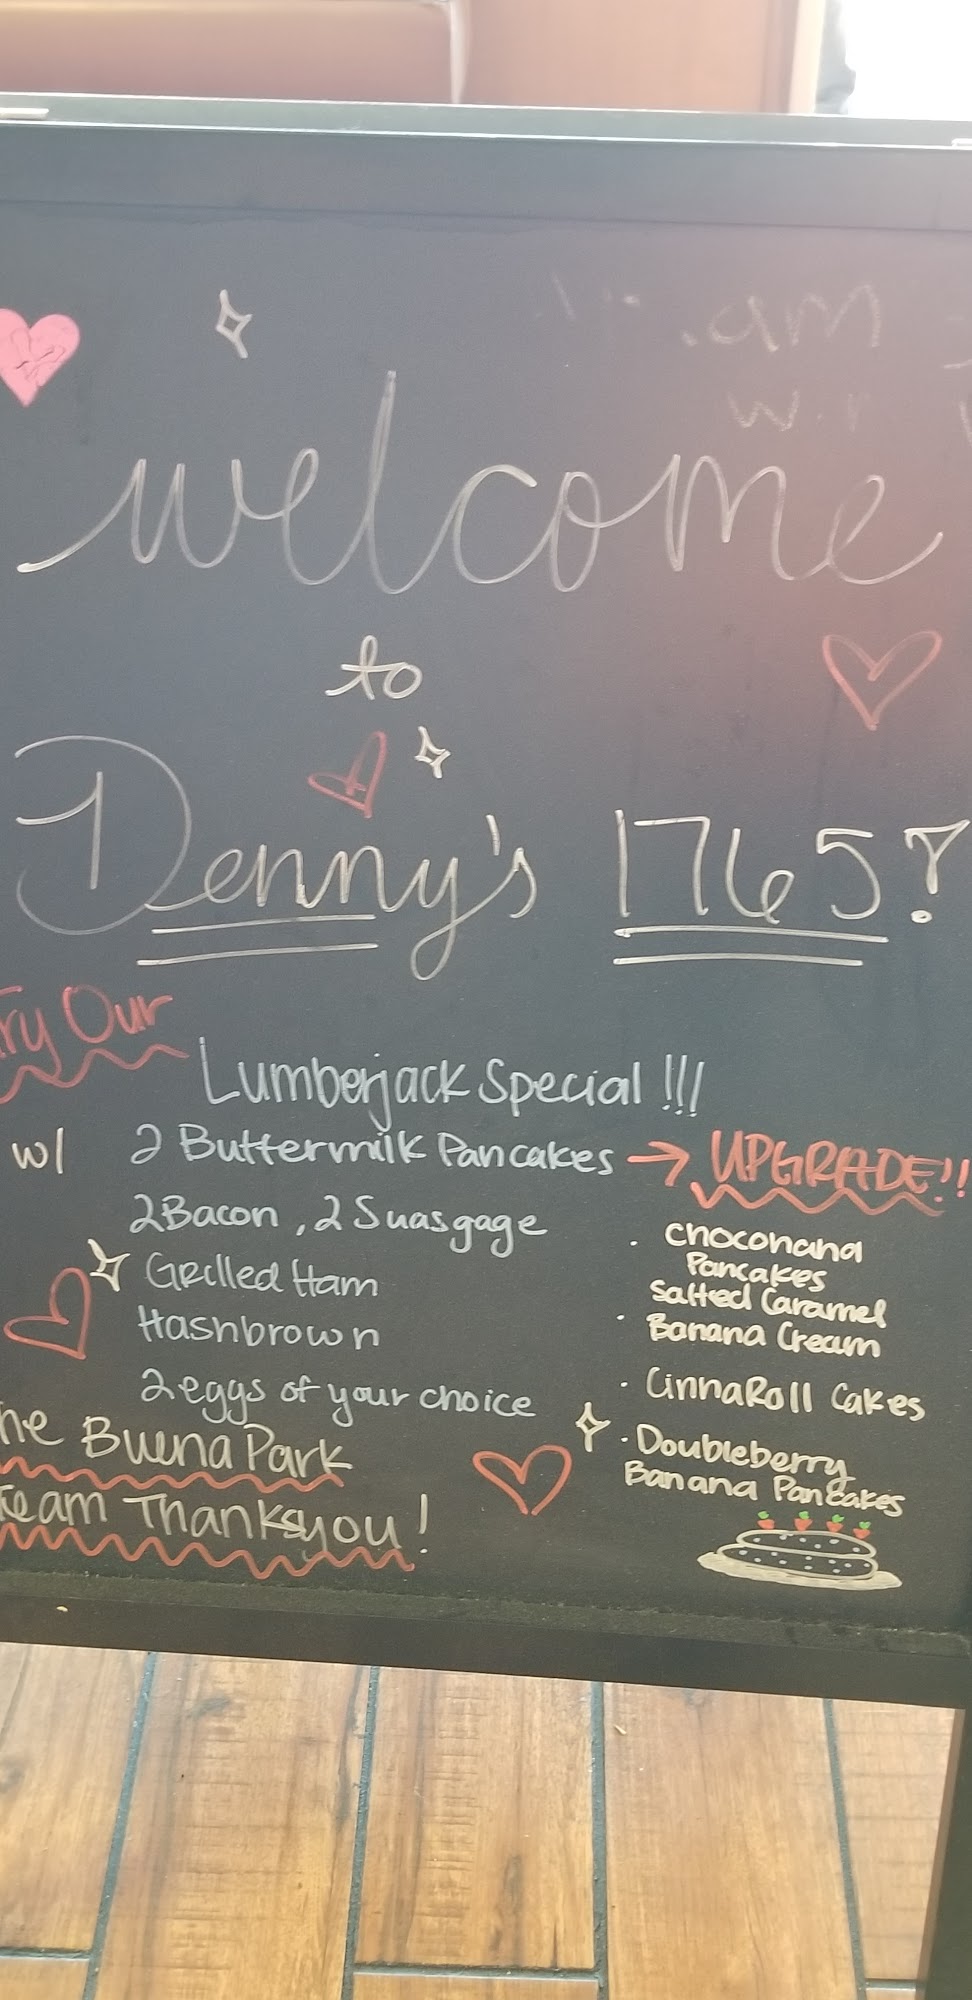 welcome
to
Denny's 1765!
Try Our
Lumberjack Special !!!
w/ 2 Buttermilk Pancakes → UPGRADE!!
2 Bacon, 2 Suasgage
Grilled Ham
Hashbrown
2 eggs of your choice
· Choconana
Pancakes
· Salted Caramel
Banana Cream
· CinnaRoll Cakes
· Doubleberry
Banana Pancakes
The Buena Park
Team Thankyou!